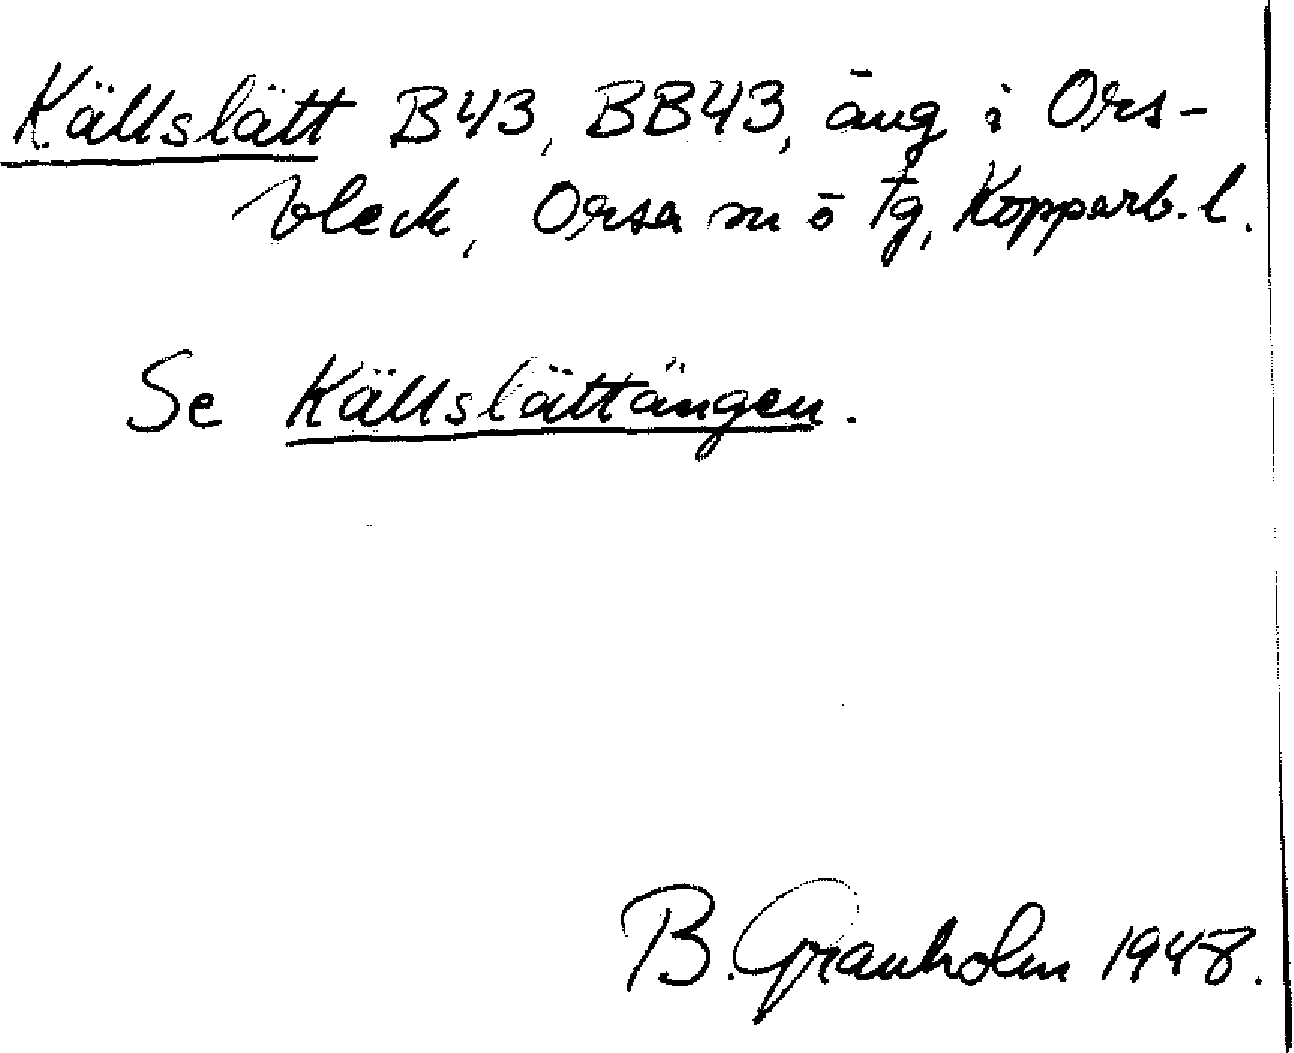 Källslätt B43, BB43, äng i Ors-
bleck, Orsa sn o tg, Kopparb. l.
Se Källslättängen.
B. Granholm 1948.